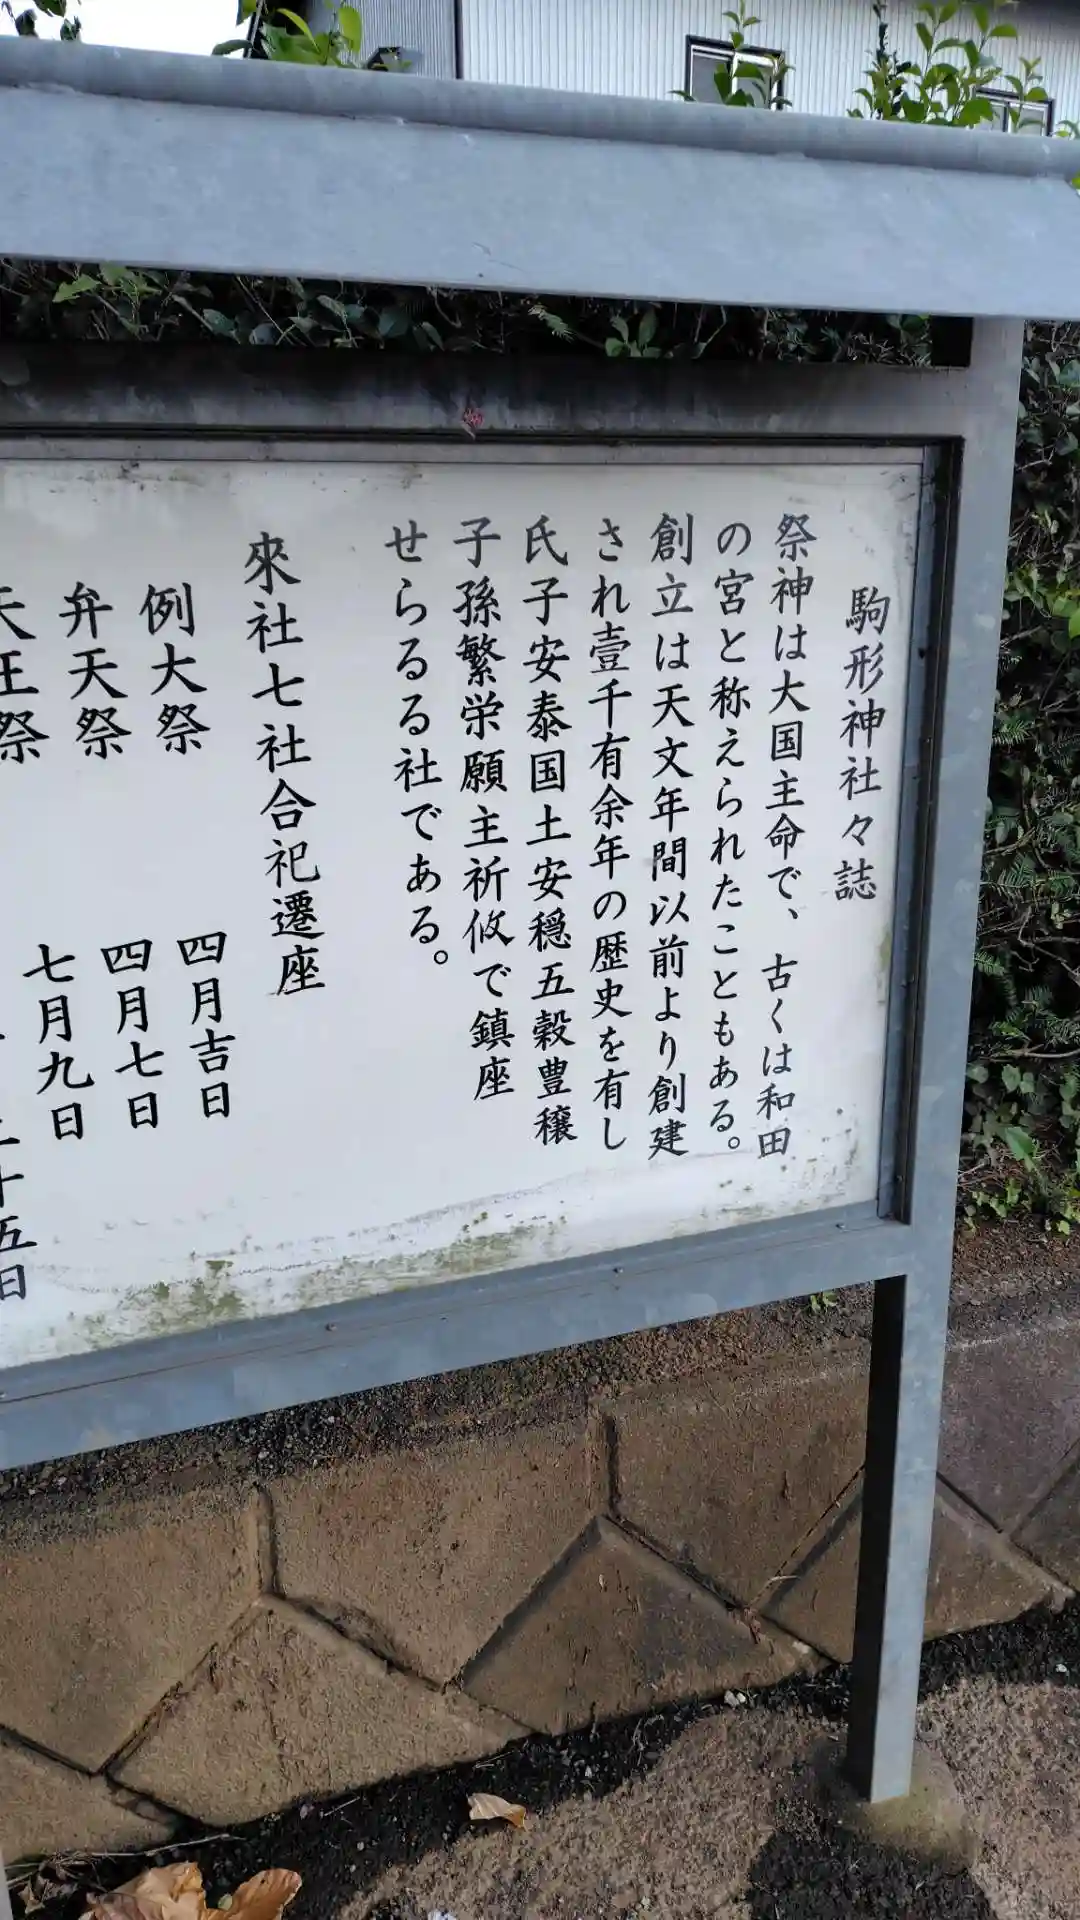 駒形神社々誌
祭神は大国主命で、古くは和田
の宮と称えられたこともある。
創立は天文年間以前より創建
され壹千有余年の歴史を有し
氏子安泰国土安穏五穀豊穣
子孫繁栄願主祈攸で鎮座
せらるる社である。
來社七社合祀遷座
例大祭 四月吉日
弁天祭 四月七日
天王祭 七月九日
十五日